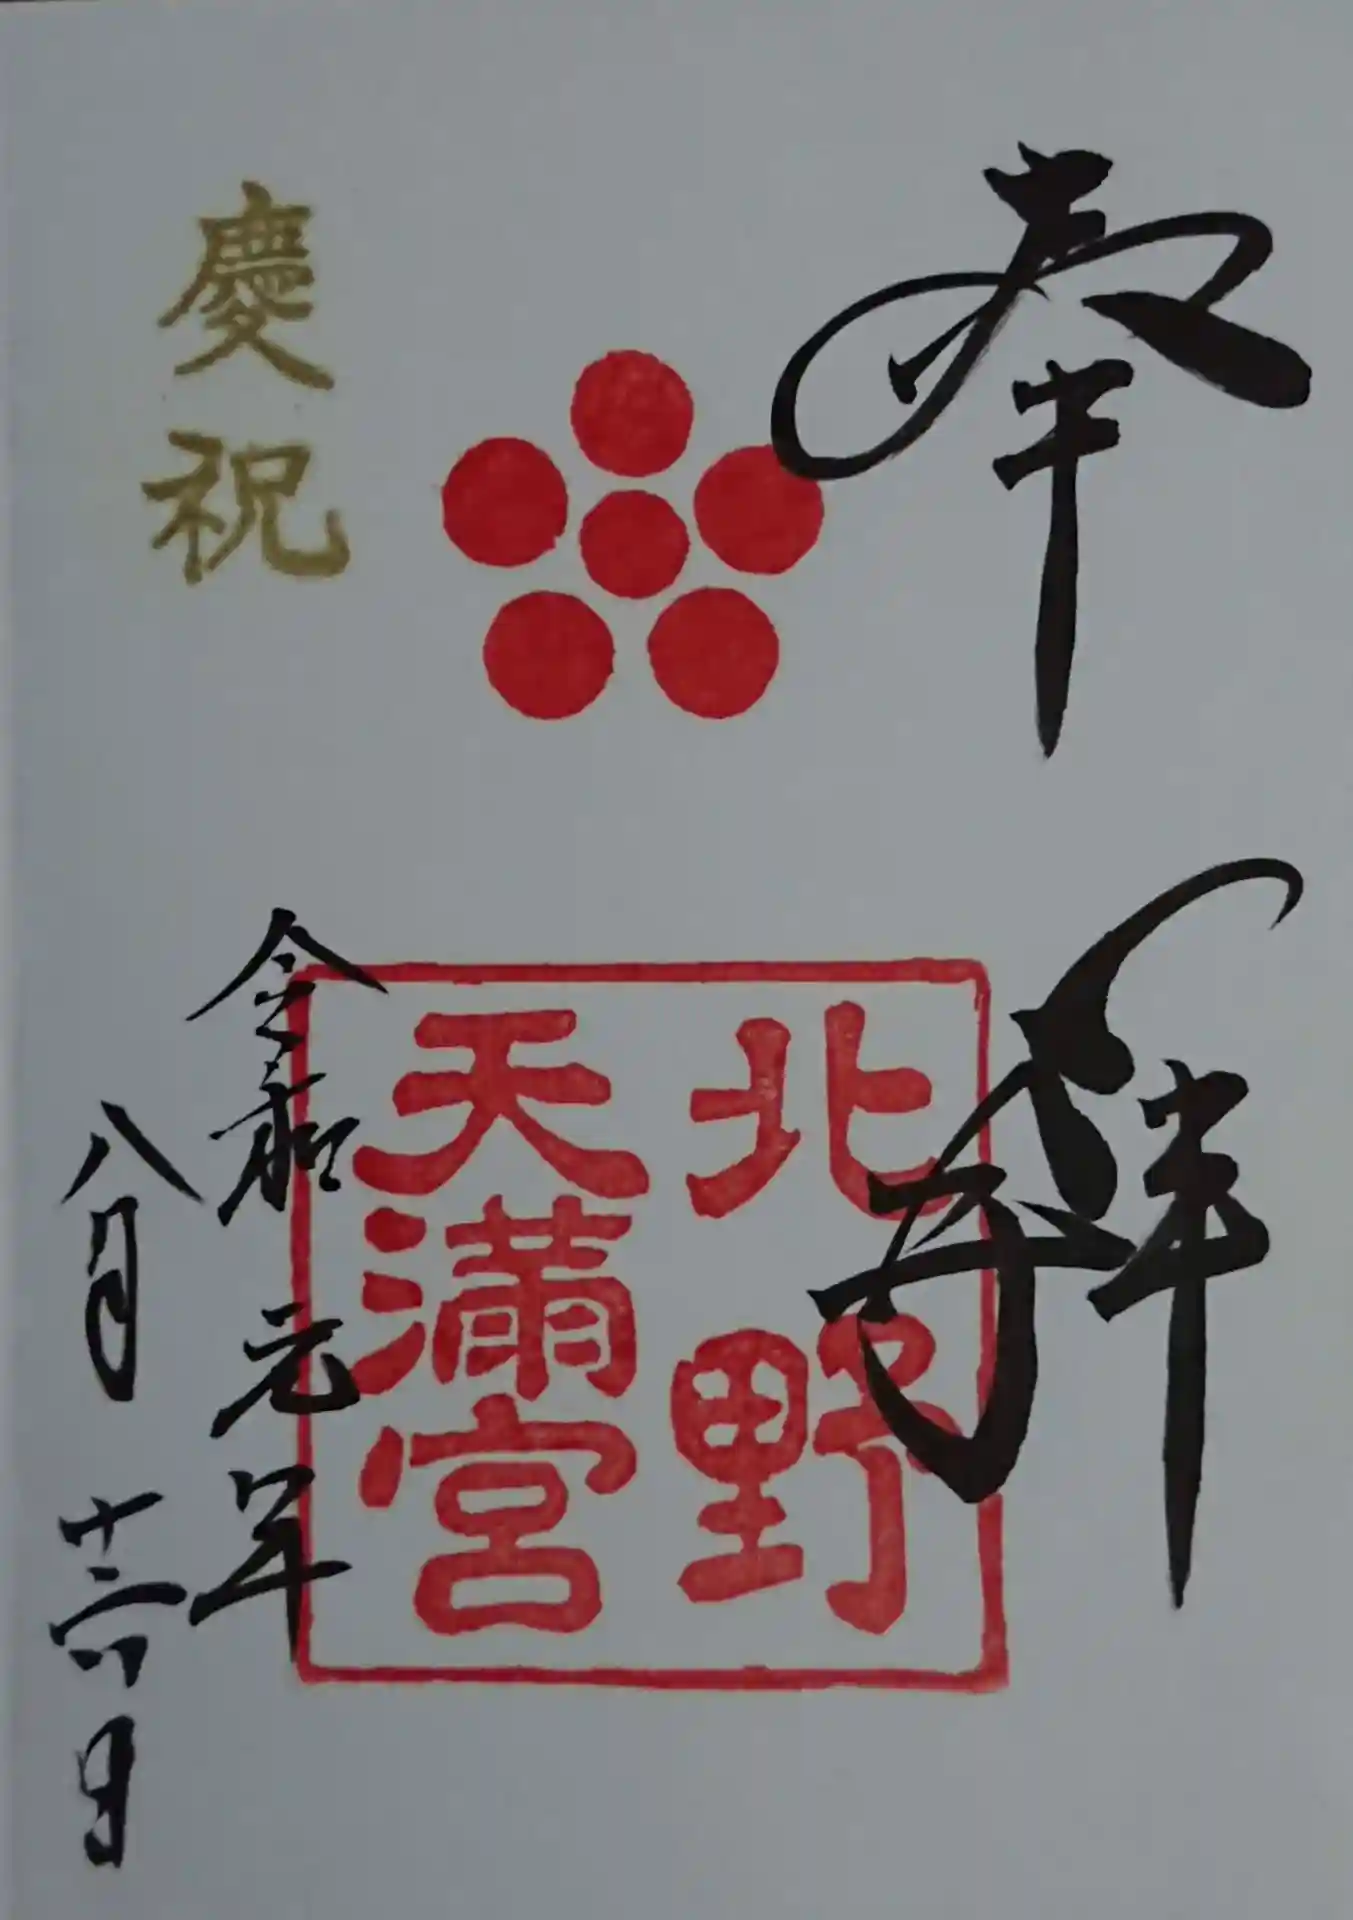 奉拝
北野
天満宮
慶祝
令和元年
八月 日